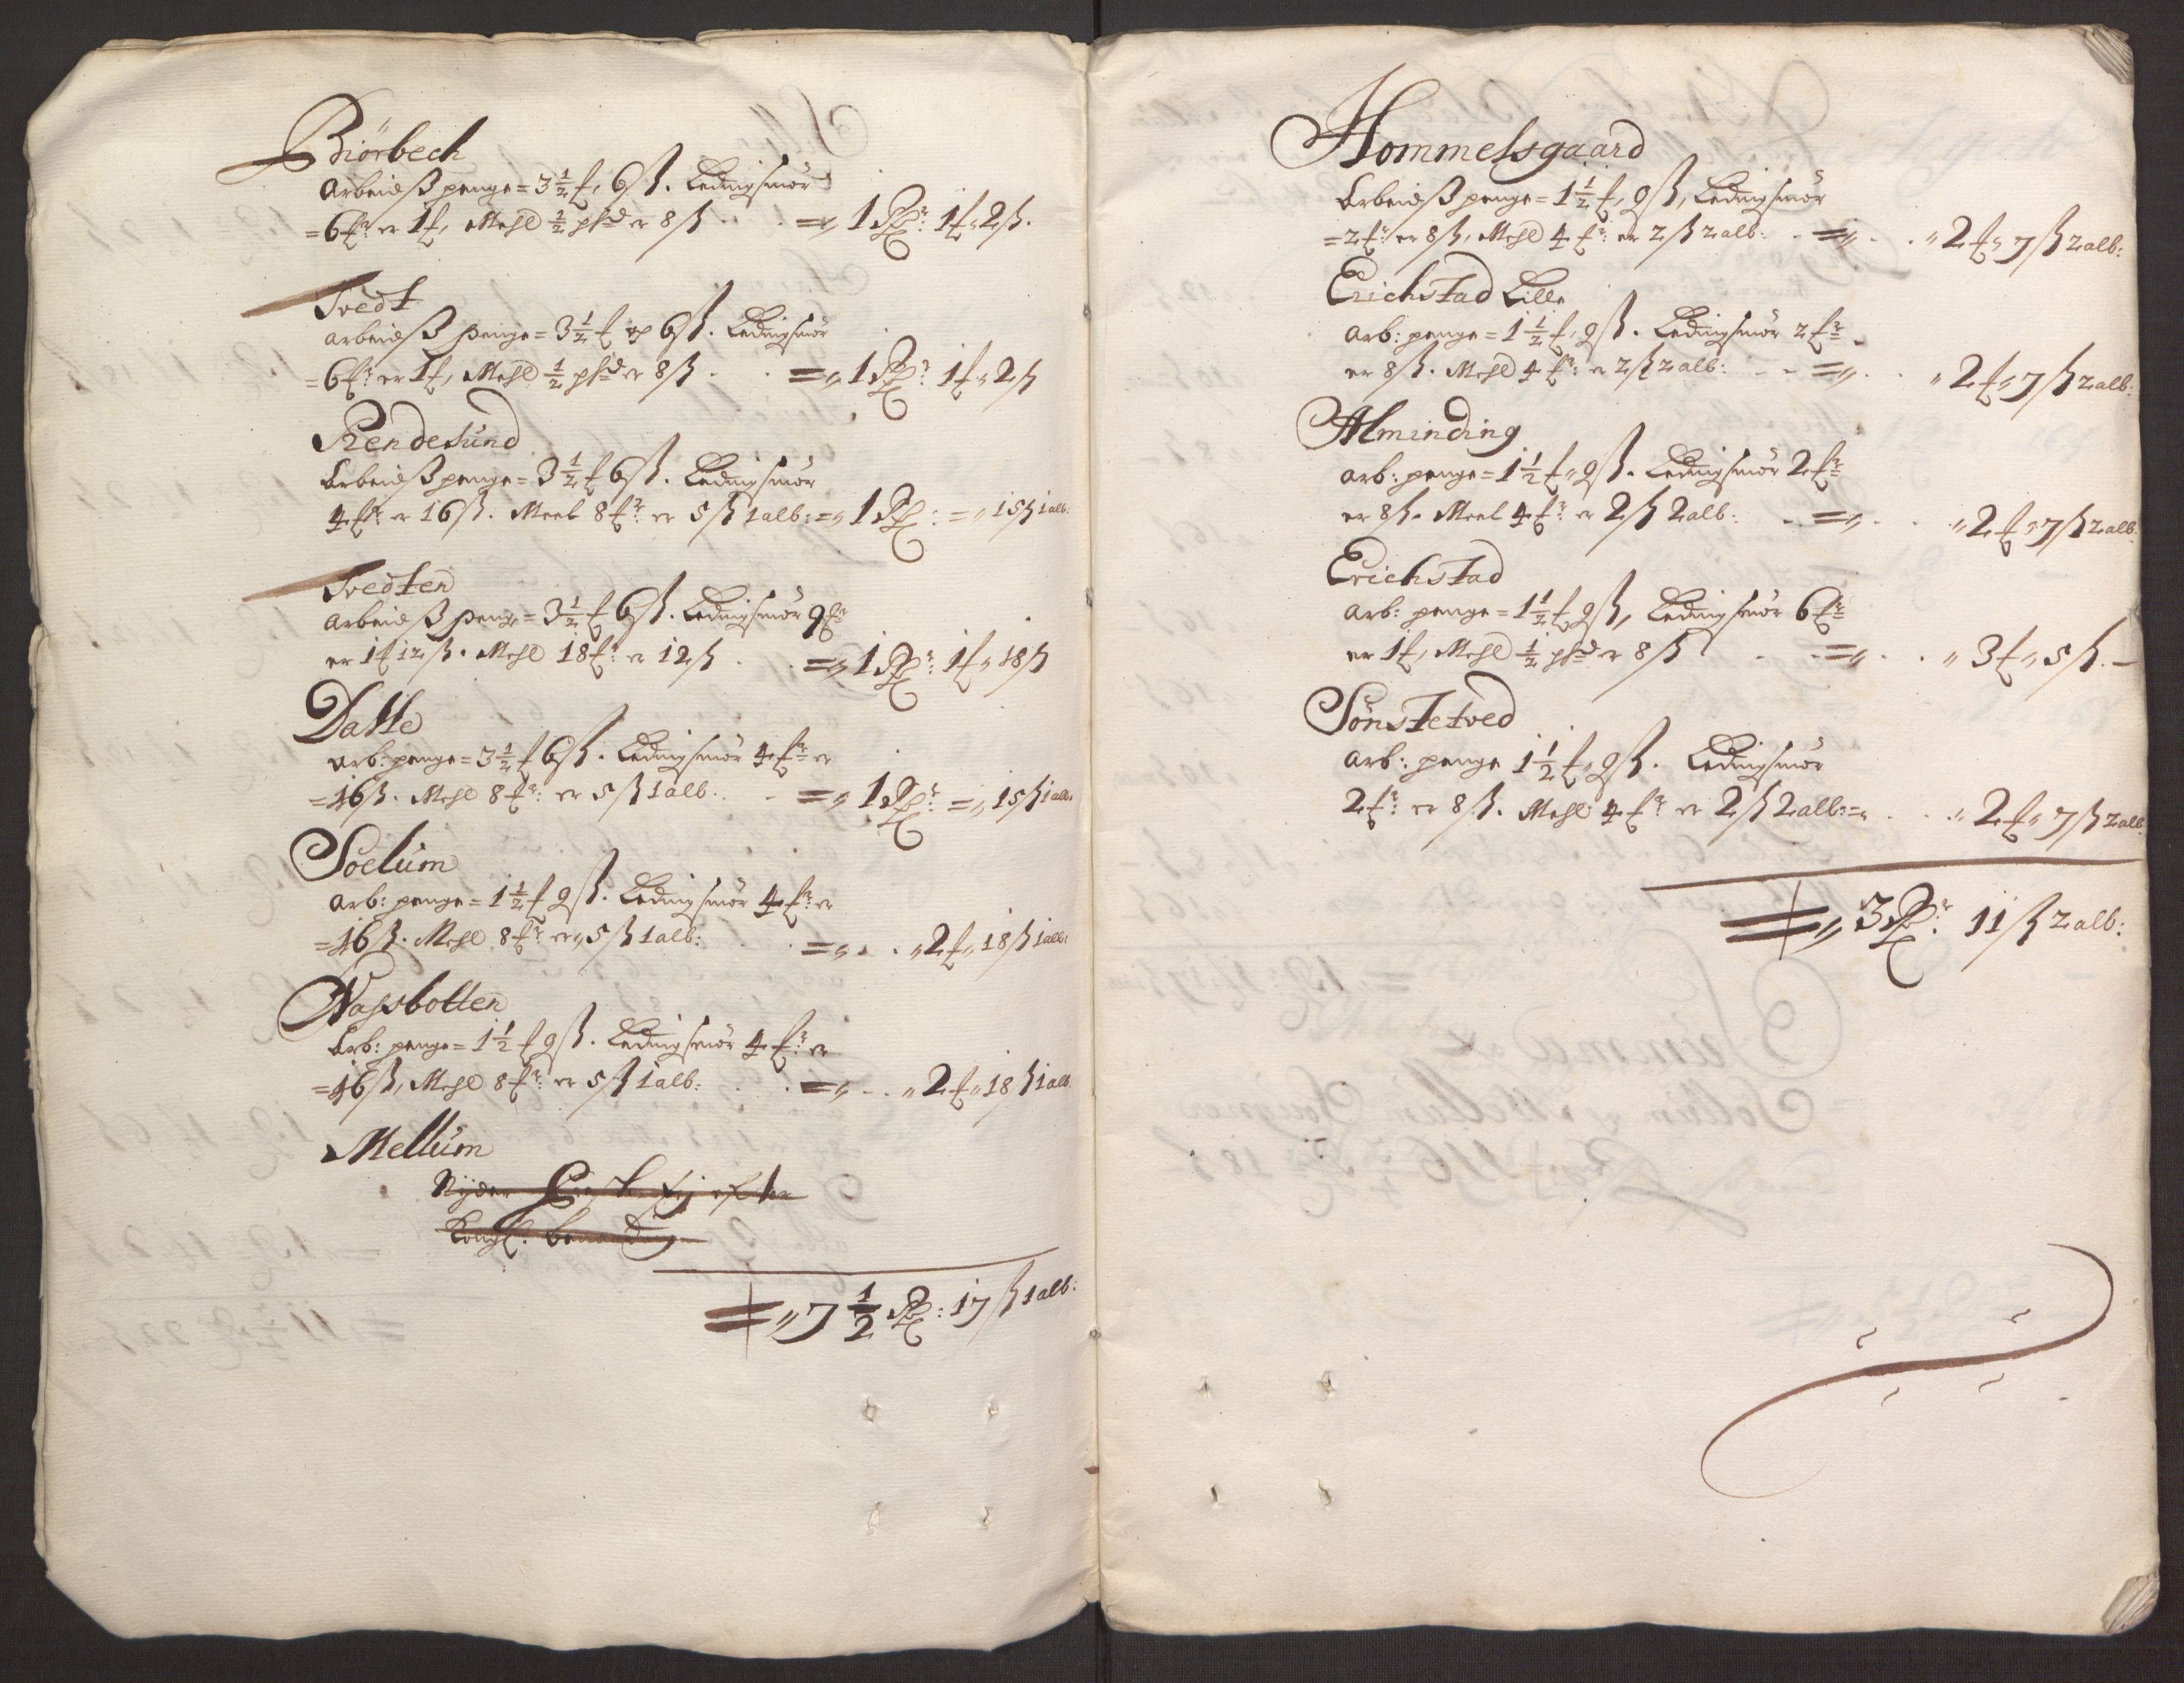 Biörbech
Arbeidß penge = 3 1/2 f, 6 ß. Ledingsmör
= 6 f:r er 1 f, Mehl 1/2 pfd er 8 ß . . =„ 1 Rdr: 1 f „ 2 ß.
Tvedt
Arbeidß penge = 3 1/2 f og 6 ß. Ledingsmör
= 6 f:r er 1 f, Mehl 1/2 pfd er 8 ß . . =„ 1 Rdr: 1 f „ 2 ß
Rendesund
Arbeidß penge = 3 1/2 f 6 ß. Ledingsmör
4 f:r er 16 ß. Meel 8 f:r er 5 ß 1 alb: =„ 1 Rd: =„ 15 ß 1 alb:
Tvedten
Arbeidß penge = 3 1/2 f 6 ß. Ledingsmör 9 f:r
er 1 f 12 ß. Mehl 18 f:r er 12 ß . . =„ 1 Rdr: 1 f „ 18 ß
Dalle
Arb: penge = 3 1/2 f 6 ß. Ledingsmör 4 f:r er
= 16 ß. Mehl 8 f:r er 5 ß 1 alb. . =„ 1 Rdr: =„ 15 ß 1 alb:
Soelum
Arb: penge = 1 1/2 f 9 ß. Ledingsmör 4 f:r er
= 16 ß. Mehl 8 f:r er „ 5 ß 1 alb: . . =„ . . „ 2 f „ 18 ß 1 alb:
Nassbotten
Arb: penge = 1 1/2 f 9 ß. Ledingsmör 4 f:r er
= 16 ß, Mehl 8 f:r er 5 ß 1 alb: . . =„ . . „ 2 f „ 18 ß 1 alb.
Mellum
Nyder
Kongl: benaading
= „ 7 1/2 Rd: 17 ß 1 alb:
Hommelsgaard
Arbeidß penge = 1 1/2 f, 9 ß, Ledingsmör
= 2 f:r er 8 ß, Mehl 4 f:r er 2 ß 2 alb: . =„ . . „ 2 f „ 7 ß 2 alb:
Erichstad Lille
Arb: penge = 1 1/2 f, 9 ß. Ledingsmör 2 f:r
er 8 ß. Mehl 4 f:r er 2 ß 2 alb: . . =„ . . „ 2 f „ 7 ß 2 alb:
Alminding
Arb: penge = 1 1/2 f „ 9 ß. Ledingsmör 2 f:r
er 8 ß. Meel 4 f:r er 2 ß 2 alb: . . =„ . . „ 2 f „ 7 ß 2 alb.
Erichstad
Arb: penge = 1 1/2 f 9 ß, Ledingsmör 6 f:r
er 1 f, Mehl 1/2 pfd er 8 ß . . =„ . . „ 3 f „ 5 ß. –
Sönstetved
Arb: penge 1 1/2 f „ 9 ß. Ledingsmör
2 f:r er 8 ß. Mehl 4 f:r er 2 ß 2 alb: =„ . . „ 2 f „ 7 ß 2 alb
= „ 3 Rdr: 11 ß 2 alb: